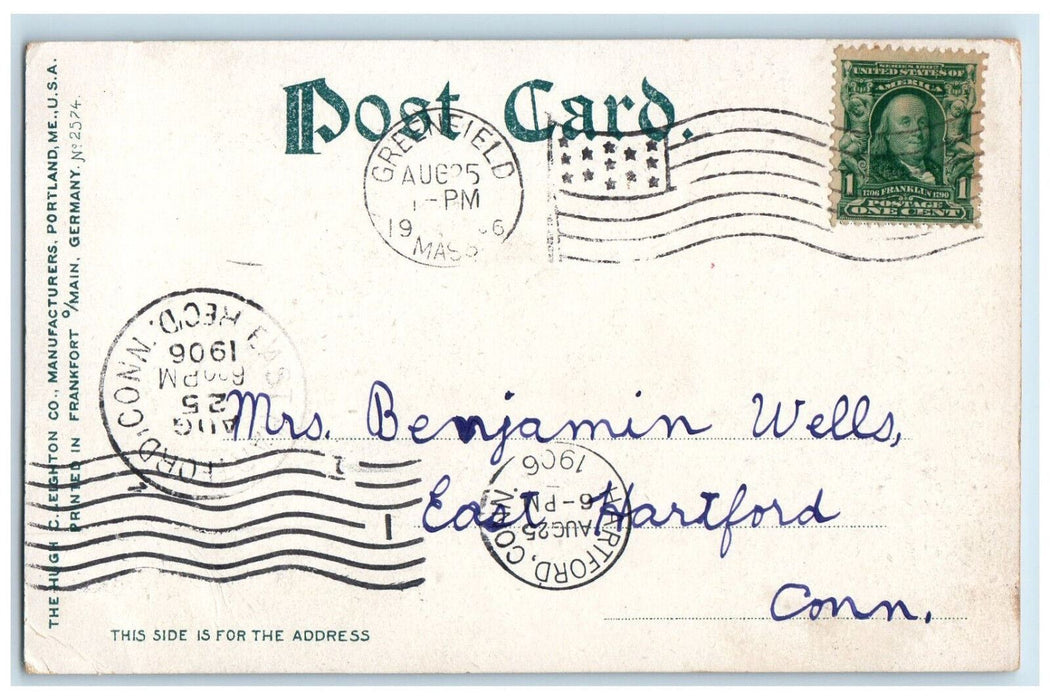 Post Card.
GREENFIELD
AUG 25
1-PM
1906
MASS
SERIES 1902
UNITED STATES OF
AMERICA
1 1706 FRANKLIN 1790 1
POSTAGE
ONE CENT
THE HUGH C. LEIGHTON CO., MANUFACTURERS, PORTLAND, ME., U.S.A.
PRINTED IN FRANKFORT o/MAIN, GERMANY. No 2574.
EAST HARTFORD, CONN. REC'D.
AUG
25
PM
1906
Mrs. Benjamin Wells,
1
East Hartford
1
HARTFORD, CONN.
AUG 25
6-PM
1906
Conn.
THIS SIDE IS FOR THE ADDRESS